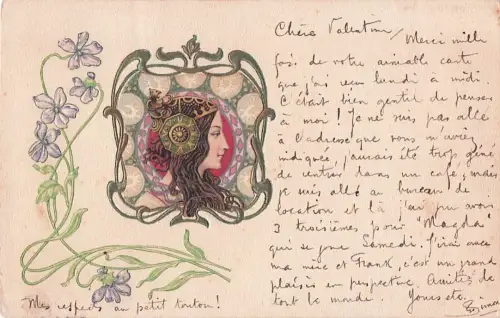 Chère Valentine / Merci mille
fois de votre aimable carte
que j'ai reçu lundi à midi.
C'était bien gentil de penser
à moi ! Je ne suis pas allé
à l'adresse que vous m'aviez
indiquée, j'aurais été trop gêné
de rentrer dans un café, mais
je suis allé au bureau de
location et là j'ai pu avoir
3 troisièmes pour "Magda"
qui se joue Samedi. J'irai avec
ma mère et Frank, c'est un grand
plaisir en perspective. Amitiés de
tout le monde. Yours etc.
Mes respects au petit toutou !